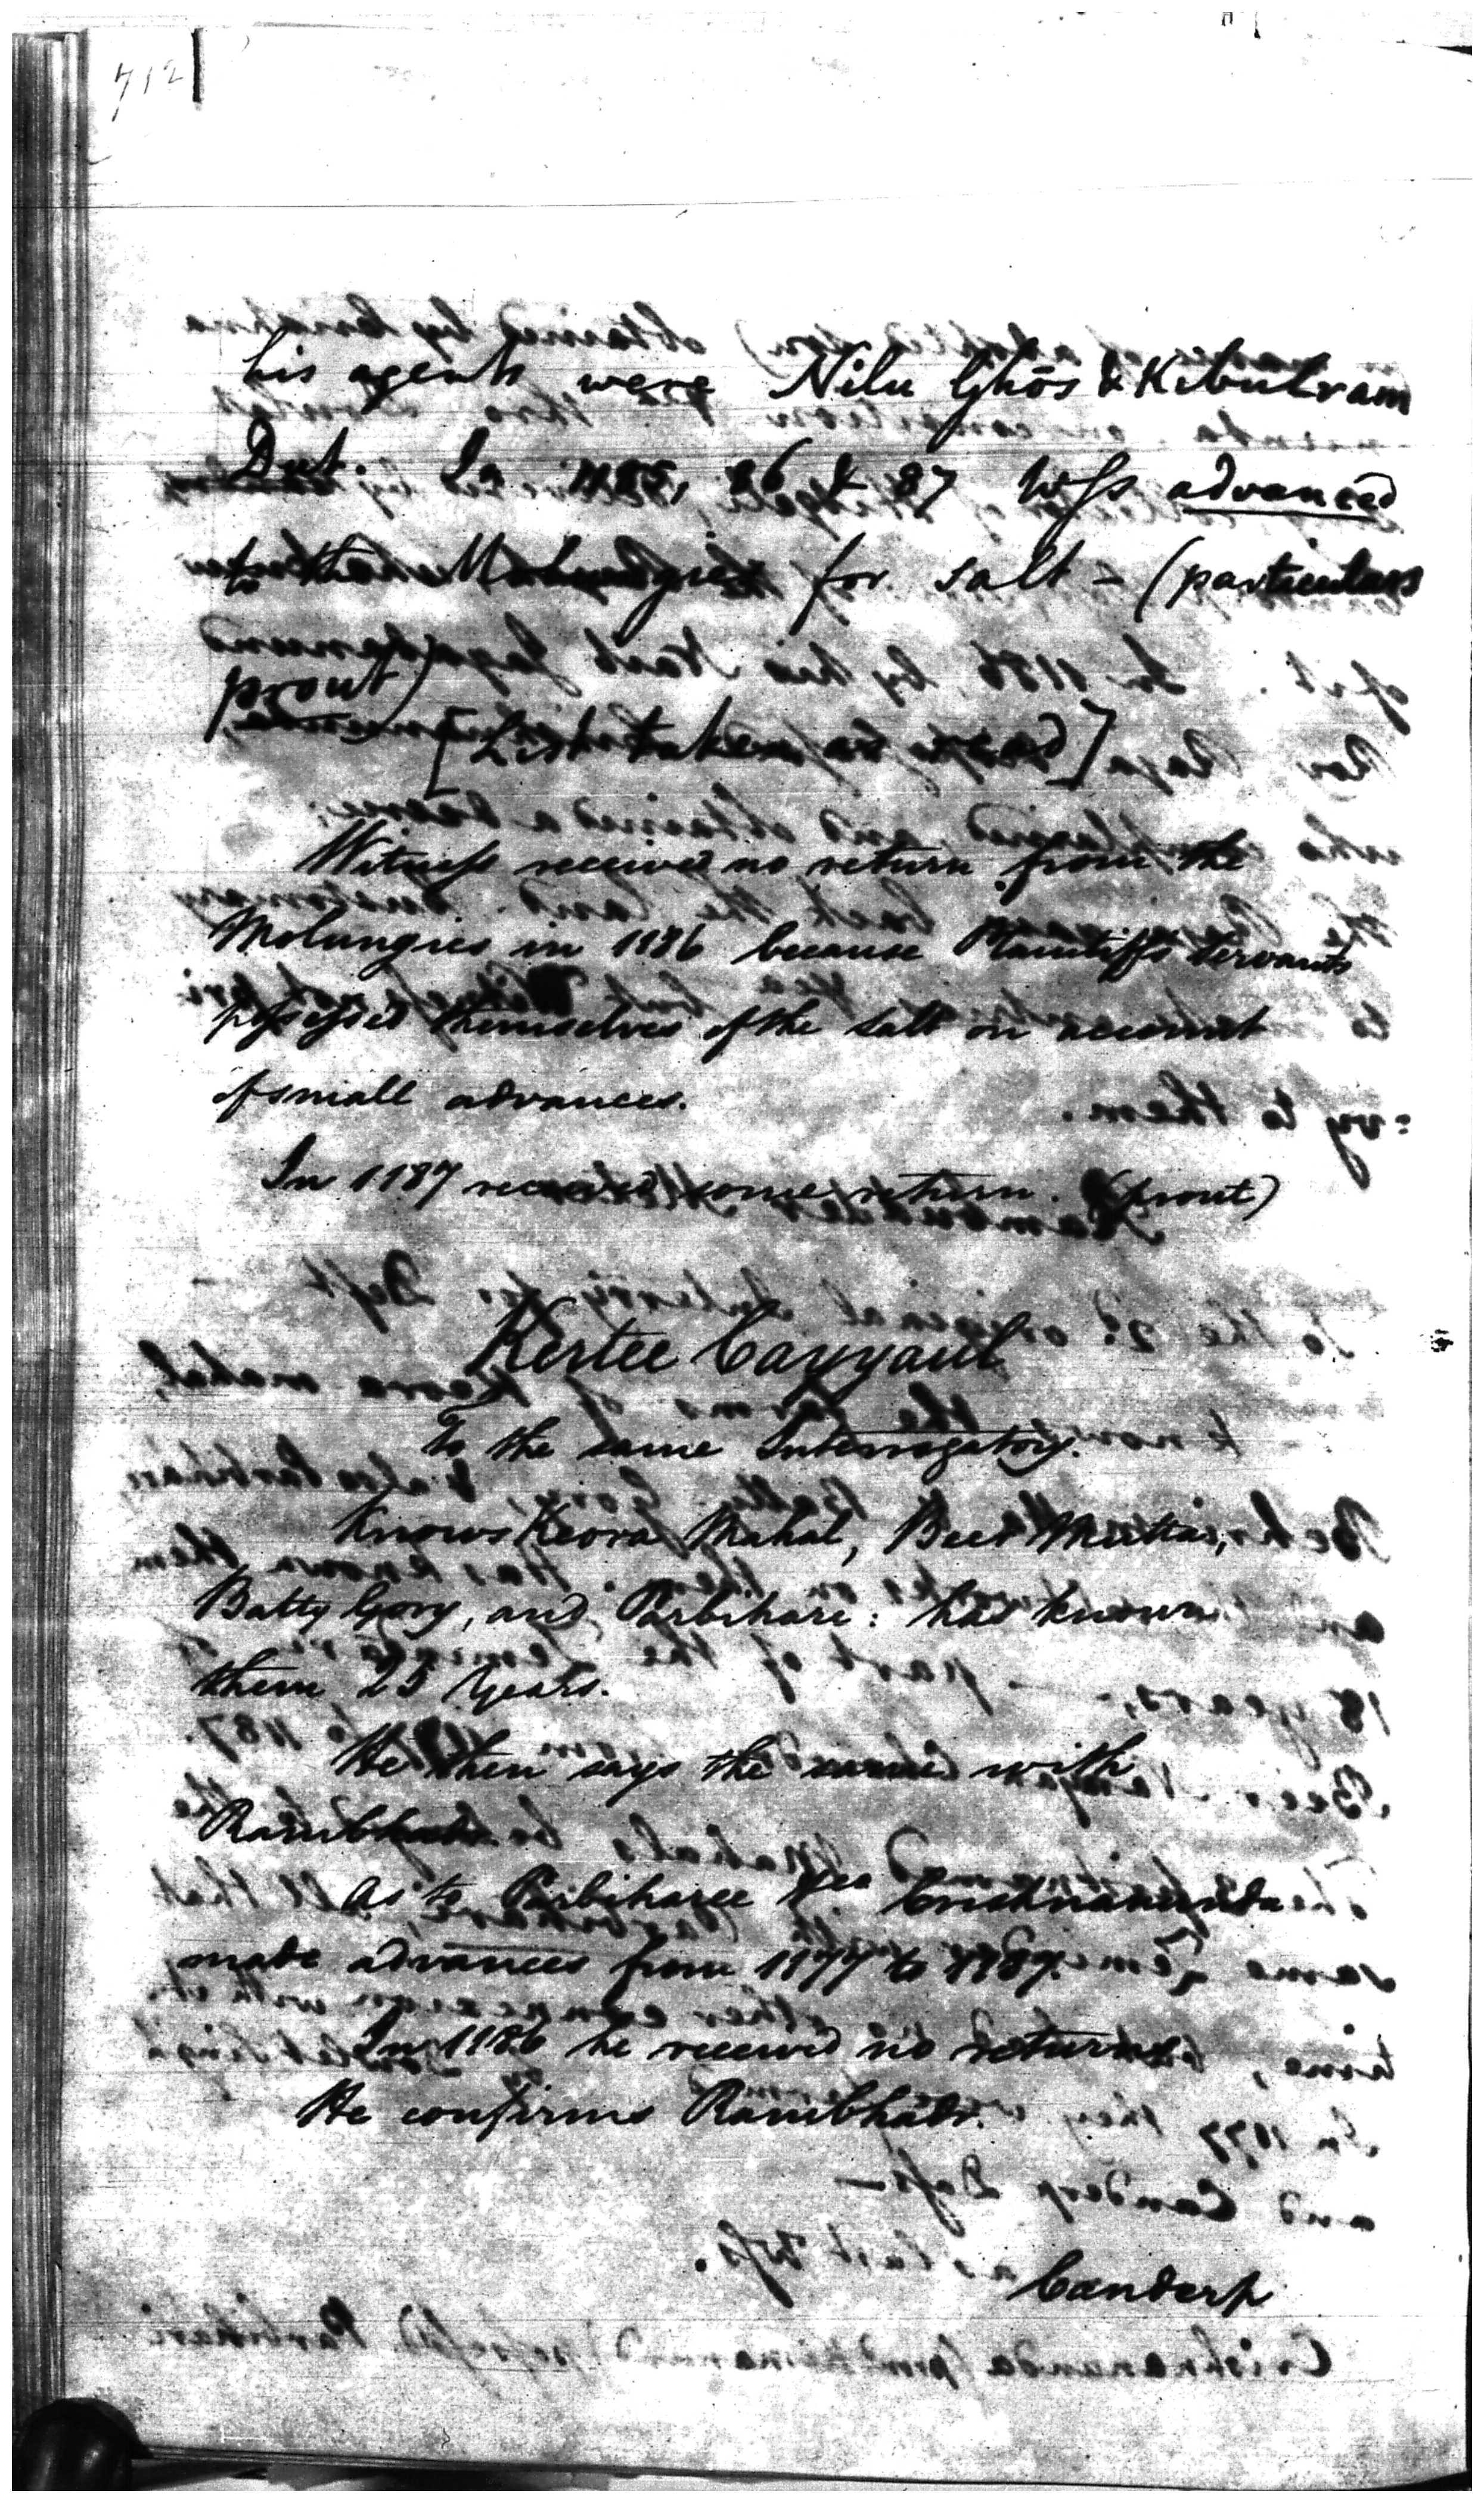 712
his agents were Nilu Ghōs & Kibulram
Dut. In 1185, 86 & 87 Wſs advanced
to the Molungies for salt - (particulars
prout)
Witneſs received no return from the
Molungies in 1186 because Plaintiffs Servants
poſseſsed themselves of the salt on account
of small advances.
In 1187 received some return. (prout)
Kertee Cayyaul
To the same Interrogatory.
Knows Keora Mahal, Beet Muttai,
Batty Gory, and Parbihare: has known
them 25 Years.
He then says the same with
Rambhadr.
As to Parbiharee yea Crishnanunda
made advances from 1177 to 1187.
In 1186 he received no returns
He confirms Rambhadr.
Canderp